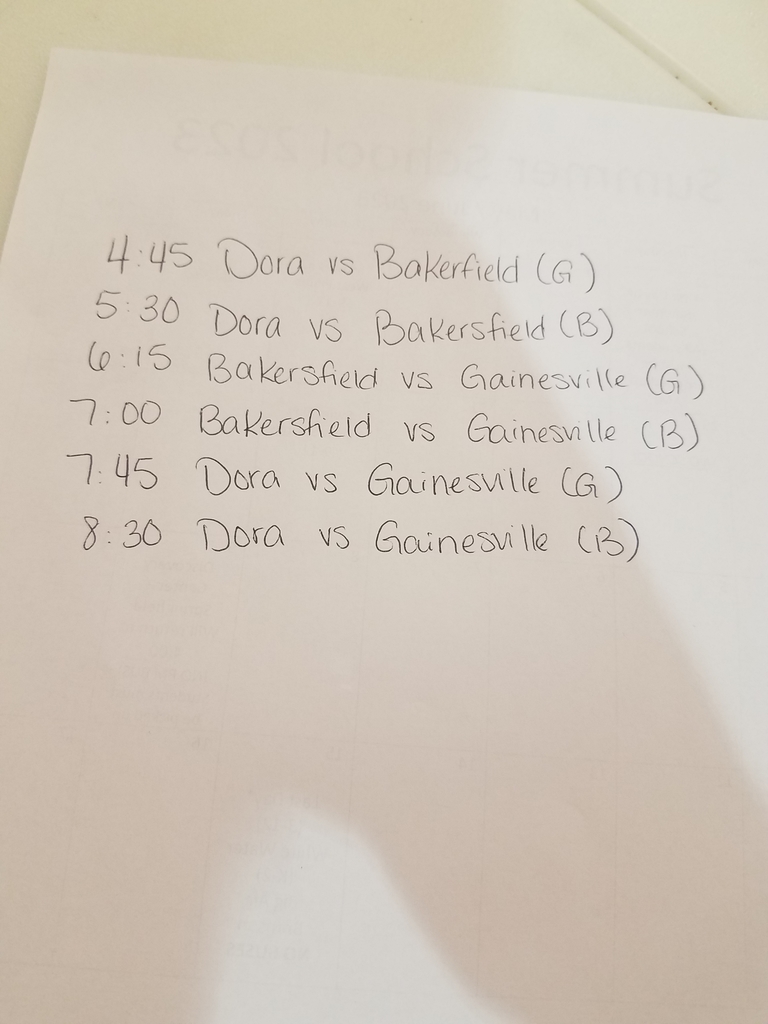 Summer School 2023
4:45 Dora vs Bakerfield (G)
5:30 Dora vs Bakersfield (B)
6:15 Bakersfield vs Gainesville (G)
7:00 Bakersfield vs Gainesville (B)
7:45 Dora vs Gainesville (G)
8:30 Dora vs Gainesville (B)